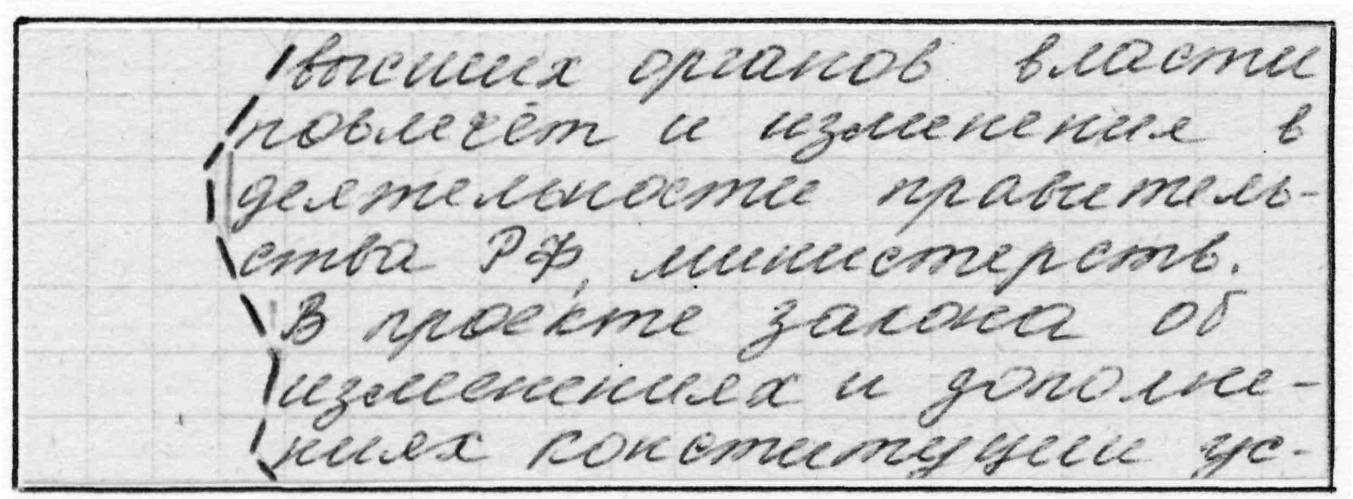 высших органов власти
повлечёт и изменения в
деятельности правитель-
ства РФ, министерств.
В проекте закона об
изменениях и дополне-
ниях конституции ус-